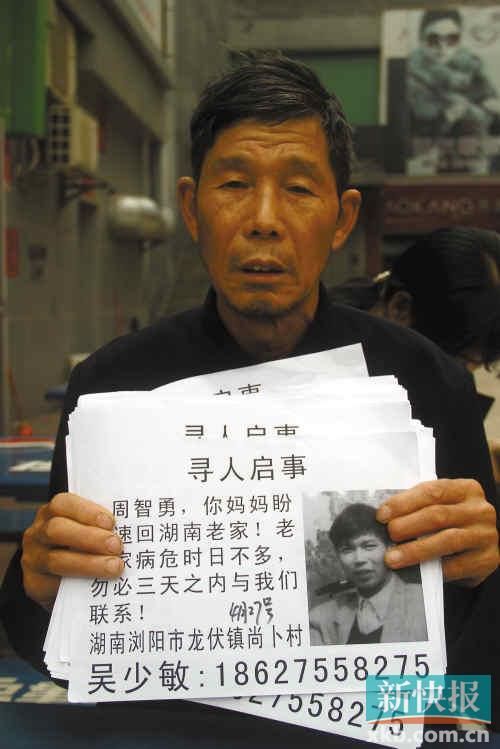 AOKANG
启事
寻人启事
寻人启事
周智勇，你妈妈盼
速回湖南老家！老
病危时日不多，
勿必三天之内与我们
联系！ 4月27号
湖南浏阳市龙伏镇尚卜村
吴少敏:18627558275
627558275
新快报
xkb.com.cn